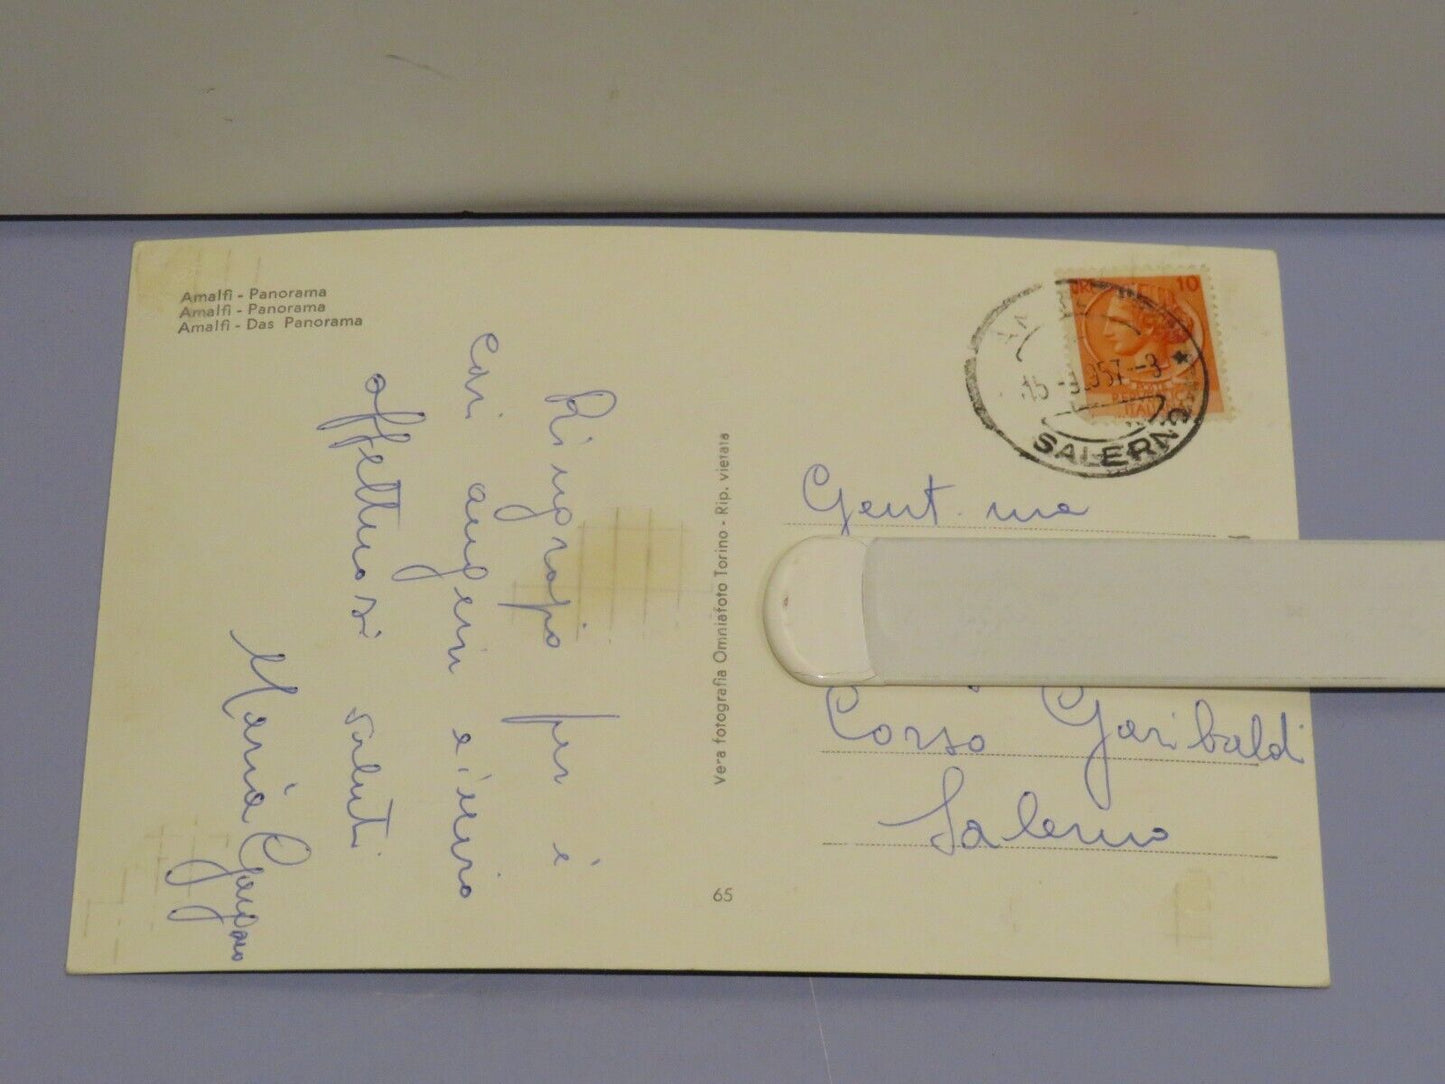 Amalfi - Panorama
Amalfi - Panorama
Amalfi - Das Panorama
Ringrazio per i
cari auguri e invio
affettuosi saluti
Maria
Vera fotografia Omniafoto Torino - Rip. vietata
65
10
REPUBBLICA
ITALIANA
SALERNO
Gent.ma
Corso Garibaldi
Salerno